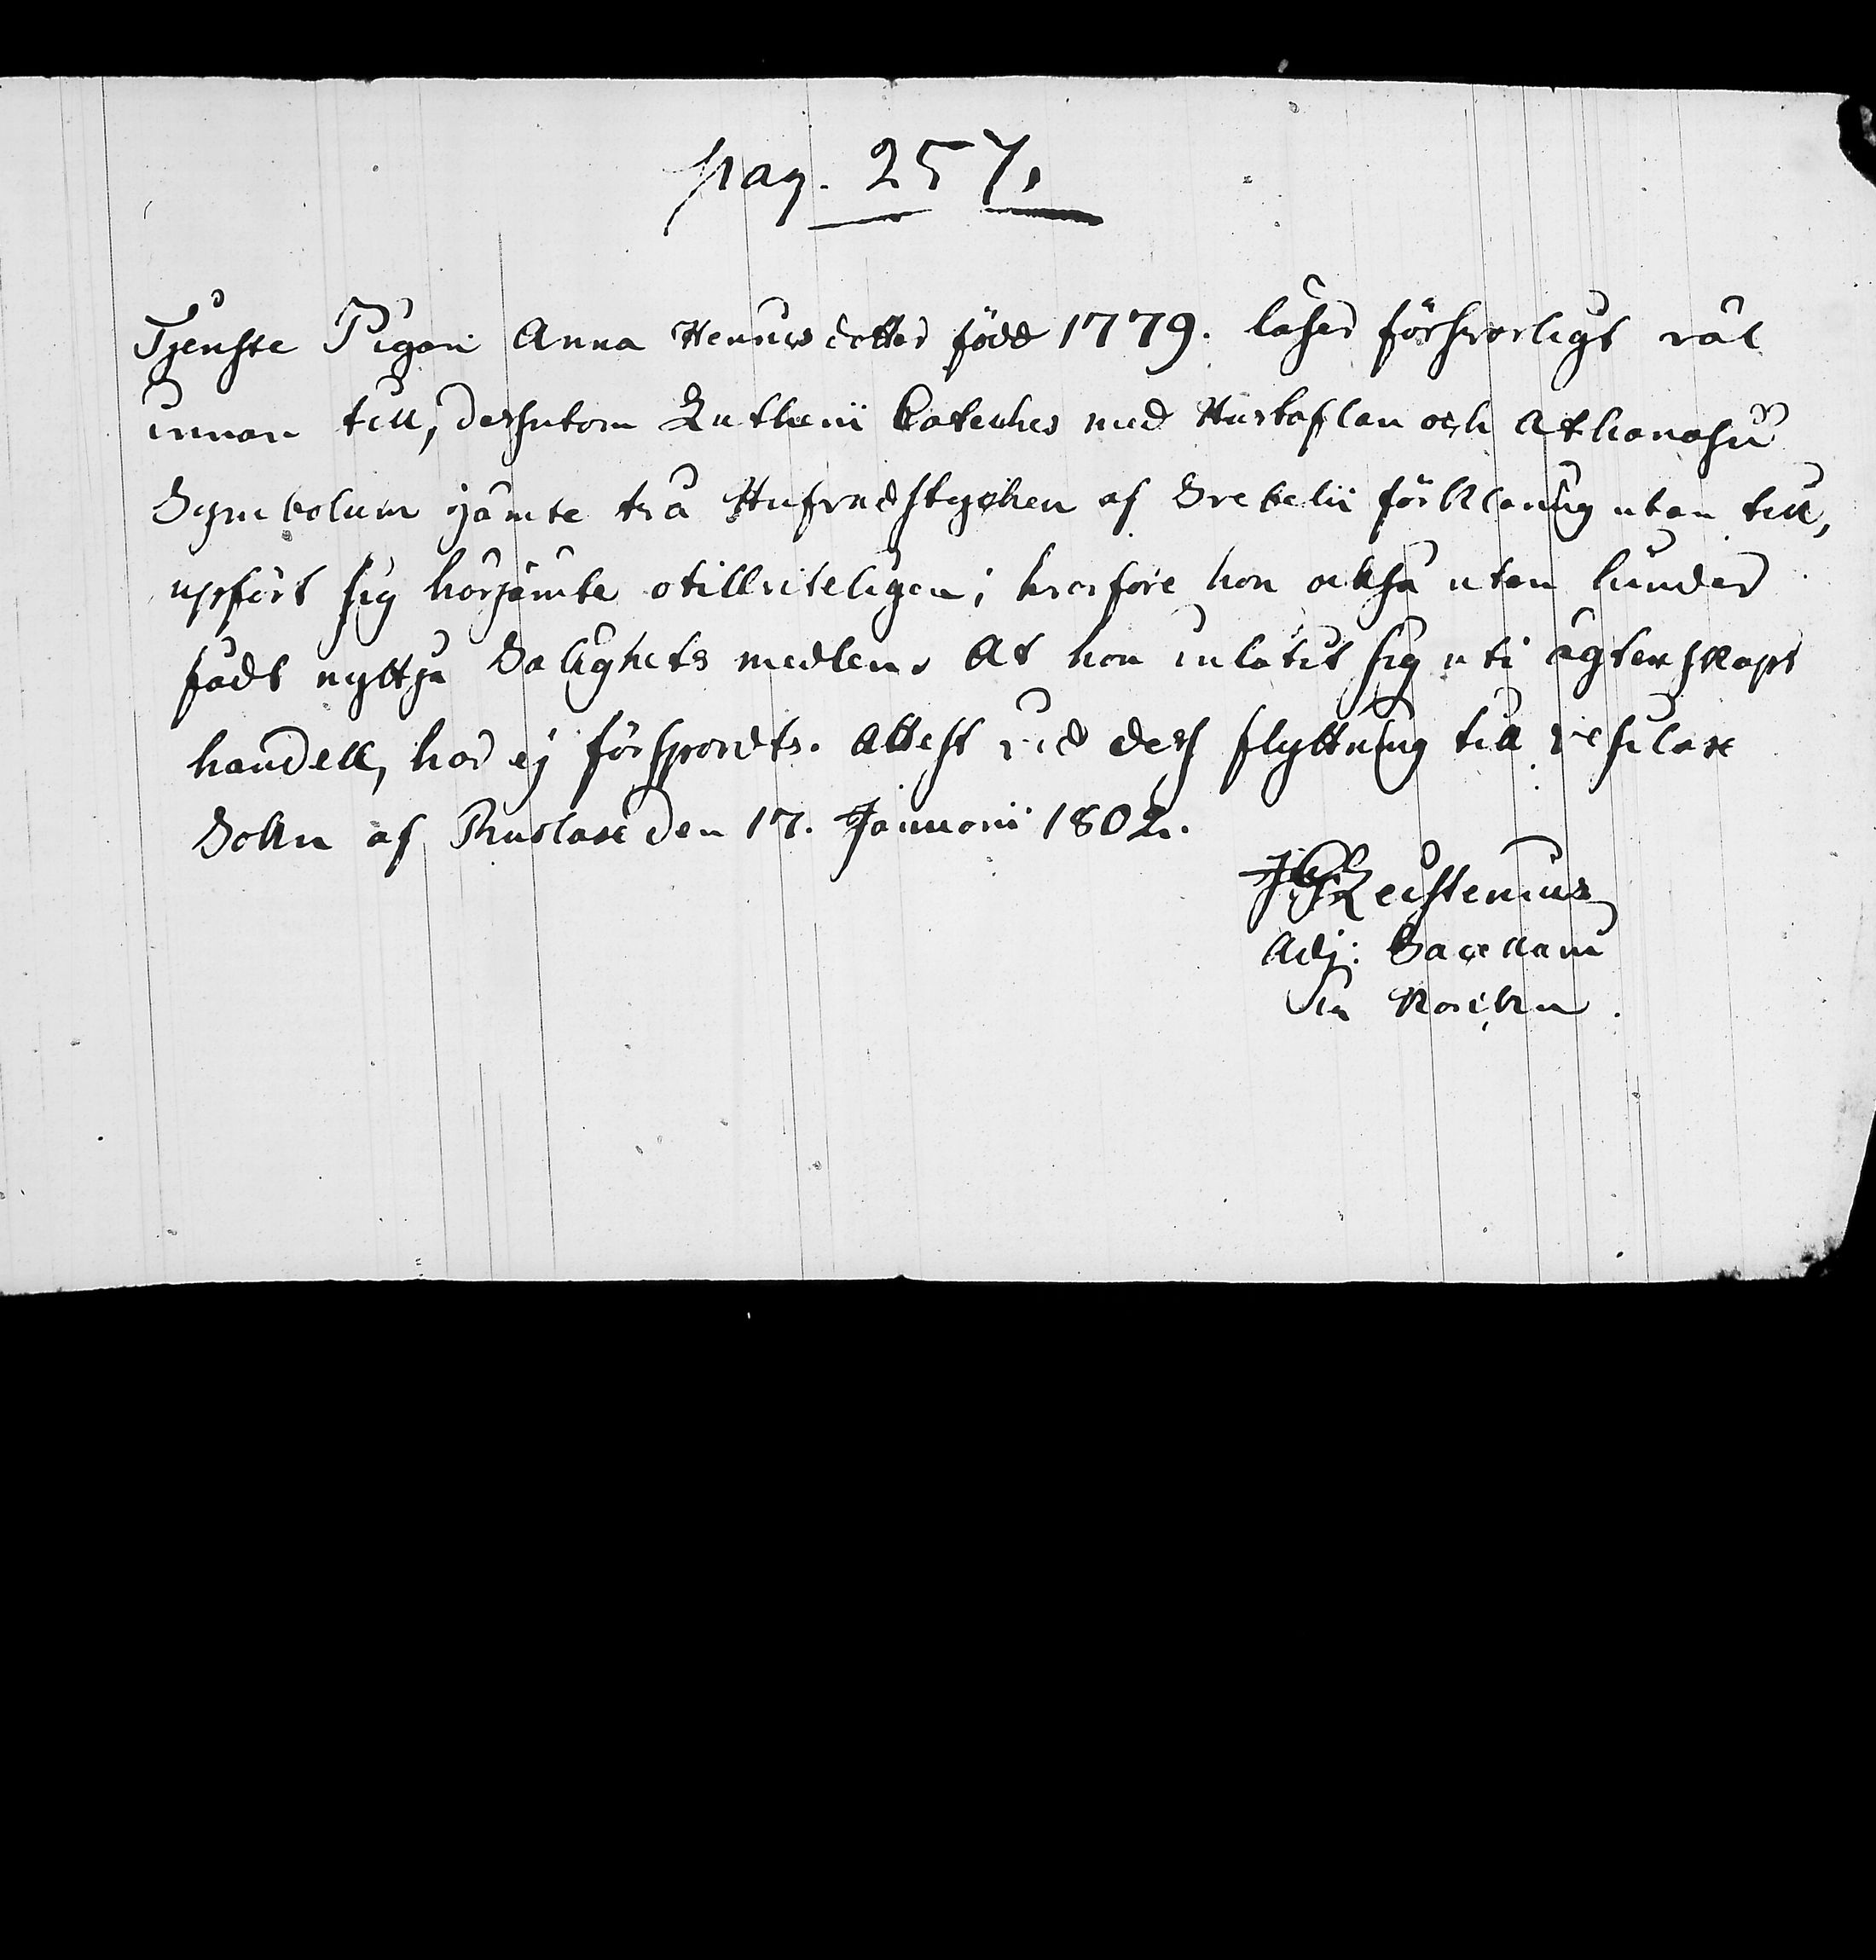 pag. 257.
Tjenste Pigan Anna Henricsdotter född 1779. läser försvarligt rät
innan till, dessutom Lutheri Cateches med Hustaflan och Athanasii
Symbolum jämte två Hufvudstycken af Svebelii förklaring utan till,
uppfört sig härjämte otillviteligen; hvarföre hon också utan hinder
fådt nyttja Salighets medlen. At hon inlåtit sig uti ägtenskaps
handell, har ej förspordts. Attest vid dess flyttning till Vesilax
Sokn af Ruslax den 17. Januarii 1802.
Leistenius
Adj: Sacellani
in